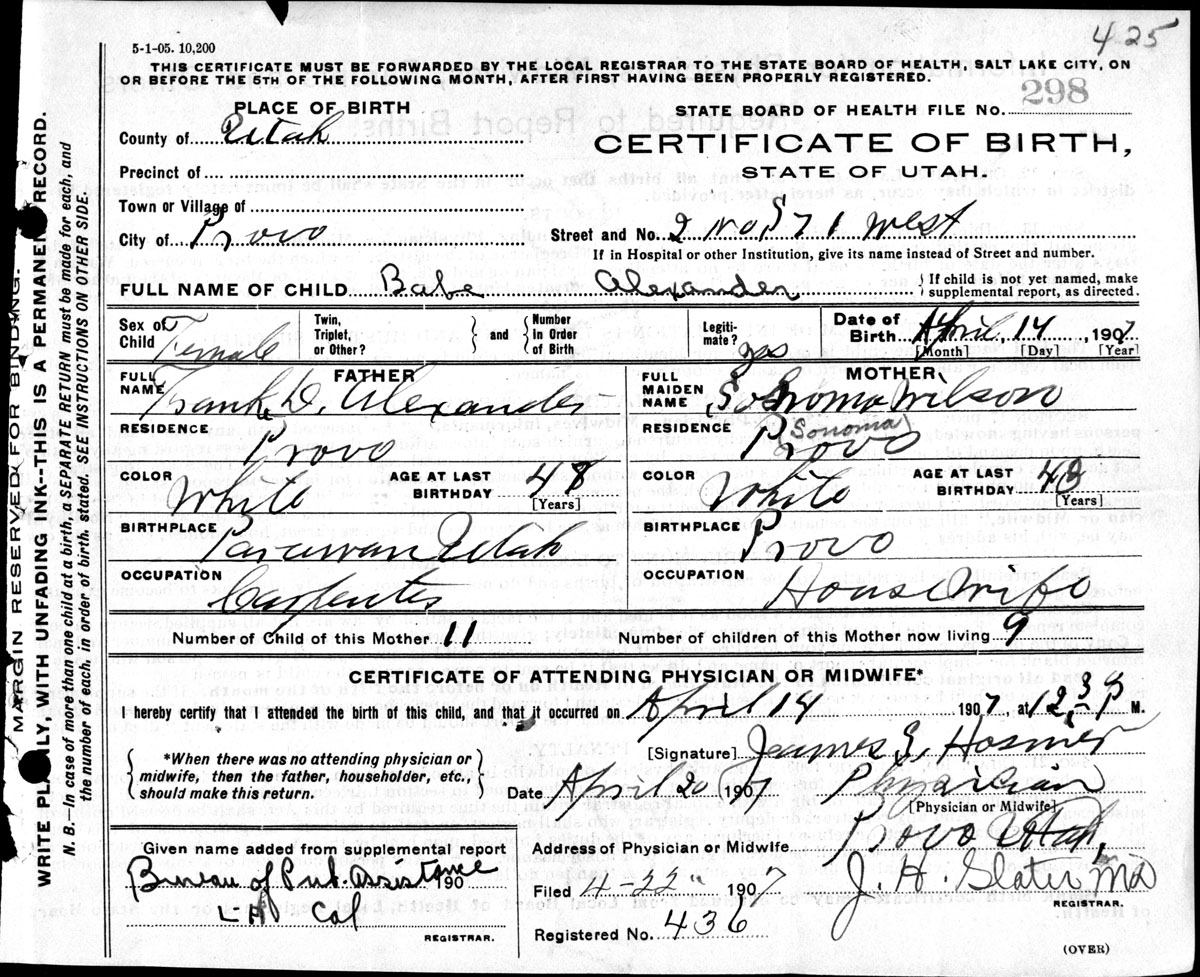 4 25
5-1-05. 10,200
THIS CERTIFICATE MUST BE FORWARDED BY THE LOCAL REGISTRAR TO THE STATE BOARD OF HEALTH, SALT LAKE CITY, ON
OR BEFORE THE 5TH OF THE FOLLOWING MONTH, AFTER FIRST HAVING BEEN PROPERLY REGISTERED.
PLACE OF BIRTH
STATE BOARD OF HEALTH FILE No. 298
County of Utah
CERTIFICATE OF BIRTH,
STATE OF UTAH.
Precinct of
Town or Village of
City of Provo
Street and No. 2 No 5 71 West
If in Hospital or other Institution, give its name instead of Street and number.
FULL NAME OF CHILD Babe Alexander { If child is not yet named, make supplemental report, as directed.
Sex of Child Female
Twin, Triplet, or Other? } and { Number In Order of Birth
Legitimate? yes
Date of Birth April, 14, 1907
[Month] [Day] [Year]
FATHER
FULL NAME Frank D. Alexander
MOTHER
FULL MAIDEN NAME Sonoma Wilson
Sonoma
RESIDENCE Provo
RESIDENCE Provo
COLOR White AGE AT LAST BIRTHDAY 48 [Years]
COLOR White AGE AT LAST BIRTHDAY 43 [Years]
BIRTHPLACE Parowan Utah
BIRTHPLACE Provo
OCCUPATION Carpenter
OCCUPATION House Wife
Number of Child of this Mother 11 Number of children of this Mother now living 9
CERTIFICATE OF ATTENDING PHYSICIAN OR MIDWIFE*
I hereby certify that I attended the birth of this child, and that it occurred on April 14 1907 at 12 35 P M.
{ *When there was no attending physician or midwife, then the father, householder, etc., should make this return. }
[Signature] James E. Hosmer
Date April 20 1907 Physician
[Physician or Midwife]
Given name added from supplemental report
Bureau of Pub. Assistance 190
L A Cal
REGISTRAR.
Address of Physician or Midwife Provo Utah,
Filed 4-22" 1907 J. H. Slater MD
REGISTRAR.
Registered No. 436
(OVER)
MARGIN RESERVED FOR BINDING.
WRITE PLAINLY, WITH UNFADING INK--THIS IS A PERMANENT RECORD.
N. B.—In case of more than one child at a birth, a SEPARATE RETURN must be made for each, and
the number of each, in order of birth, stated. SEE INSTRUCTIONS ON OTHER SIDE.